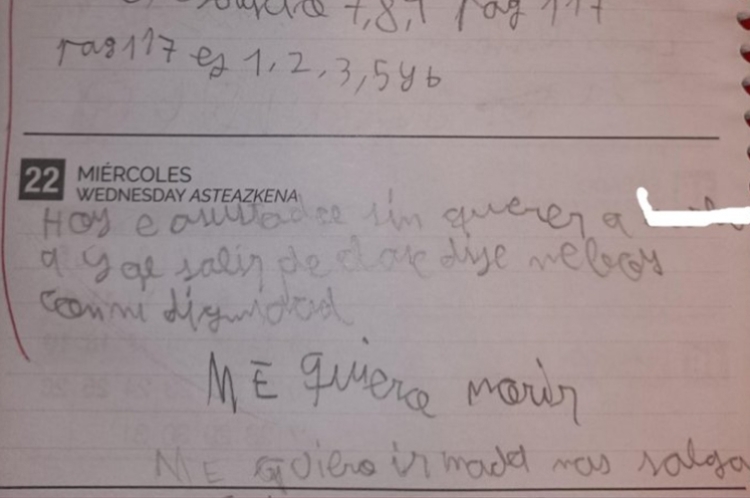 7,8,9 pag 117
pag 117 ej 1, 2, 3, 5 y 6
22 MIÉRCOLES
WEDNESDAY ASTEAZKENA
Hoy e asustadoe sin querer a
a y al salir de clase dije me boy
con mi dignidad
ME quiero morir
ME quiero ir madd mas salga